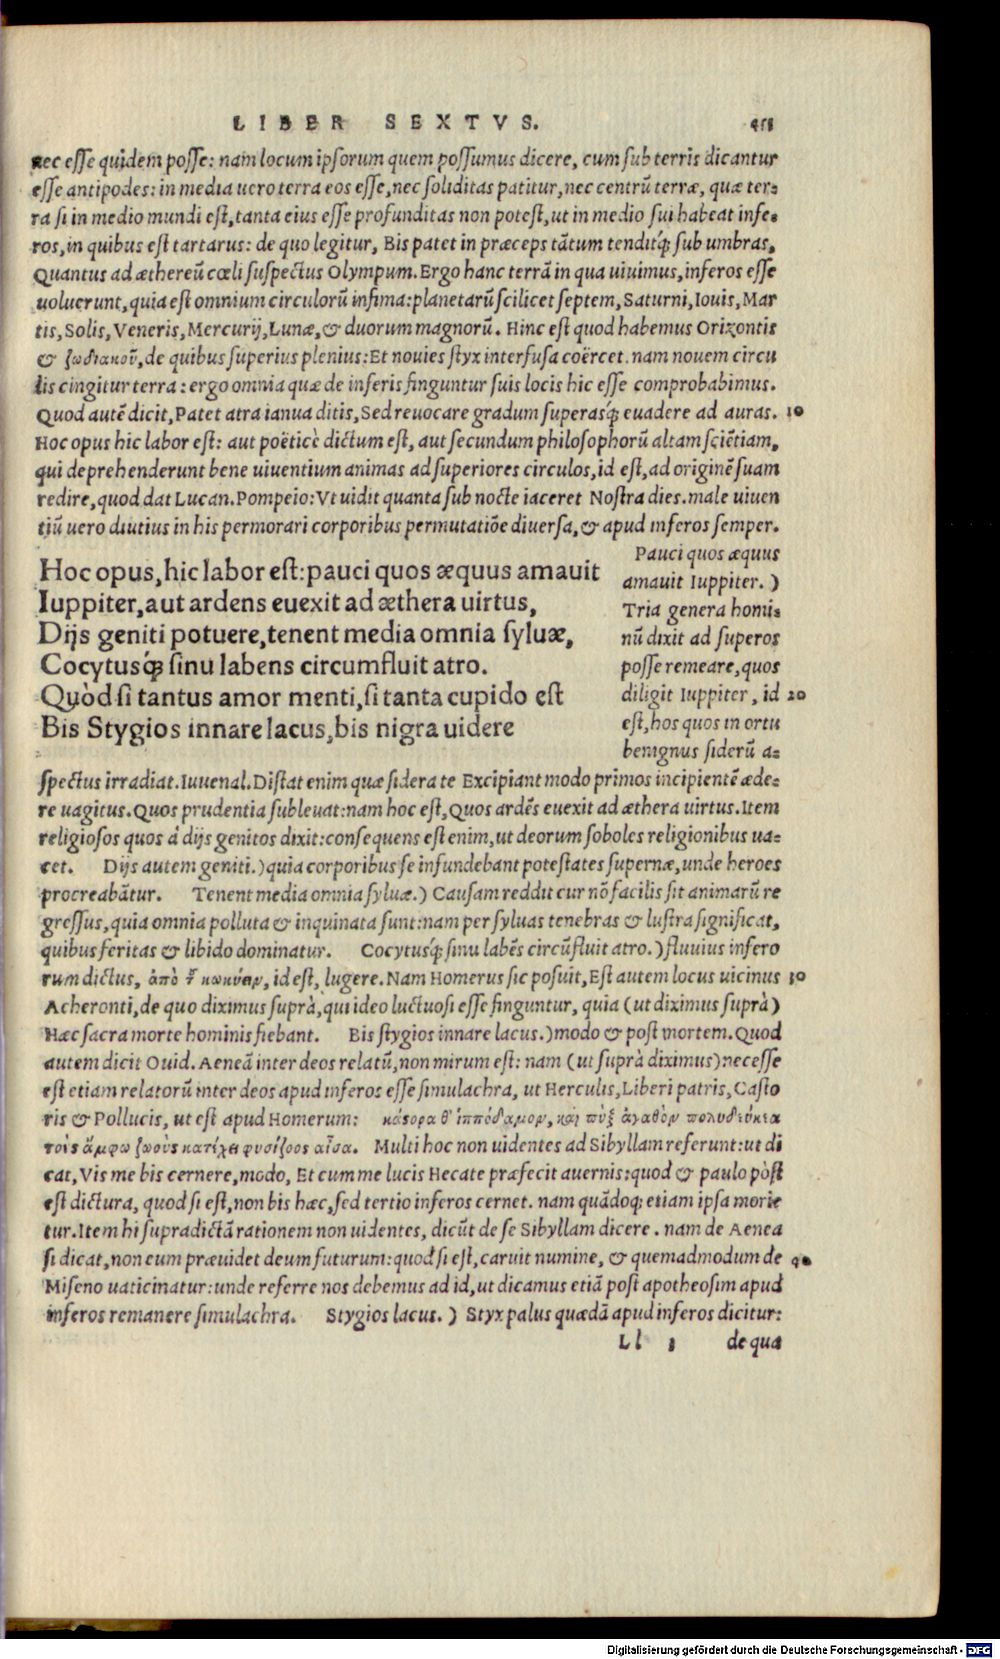 LIBER SEXTVS.
nec esse quidem posse: nam locum ipsorum quem possumus dicere, cum sub terris dicantur
esse antipodes: in media uero terra eos esse, nec soliditas patitur, nec centrũ terræ, quæ ter-
ra si in medio mundi est, tanta eius esse profunditas non potest, ut in medio sui habeat infe-
ros, in quibus est tartarus: de quo legitur, Bis patet in præceps tãtum tenditq́; sub umbras,
Quantus ad æthereũ cœli suspectus Olympum. Ergo hanc terrã in qua uiuimus, inferos esse
uoluerunt, quia est omnium circulorũ infima: planetarũ scilicet septem, Saturni, Iouis, Mar
tis, Solis, Veneris, Mercurij, Lunæ, & duorum magnorũ. Hinc est quod habemus Orizontis
& ζωδιακοῦ, de quibus superius plenius: Et nouies styx interfusa coërcet. nam nouem circu
lis cingitur terra: ergo omnia quæ de inferis finguntur suis locis hic esse comprobabimus.
Quod autẽ dicit, Patet atra ianua ditis, Sed reuocare gradum superasq́; euadere ad auras. 10
Hoc opus hic labor est: aut poëticè dictum est, aut secundum philosophorũ altam sciẽtiam,
qui deprehenderunt bene uiuentium animas ad superiores circulos, id est, ad originẽ suam
redire, quod dat Lucan. Pompeio: Vt uidit quanta sub nocte iaceret Nostra dies. male uiuen
tiũ uero diutius in his permorari corporibus permutatiõe diuersa, & apud inferos semper.
Hoc opus, hic labor est: pauci quos æquus amauit
Iuppiter, aut ardens euexit ad æthera uirtus,
Dijs geniti potuere, tenent media omnia syluæ,
Cocytusq́; sinu labens circumfluit atro.
Quòd si tantus amor menti, si tanta cupido est
Bis Stygios innare lacus, bis nigra uidere
Pauci quos æquus
amauit Iuppiter. )
Tria genera homi-
nũ dixit ad superos
posse remeare, quos
diligit Iuppiter, id 20
est, hos quos in ortu
benignus siderũ a-
spectus irradiat. Iuuenal. Distat enim quæ sidera te Excipiant modo primos incipientẽ æde-
re uagitus. Quos prudentia subleuat: nam hoc est, Quos ardẽs euexit ad æthera uirtus. Item
religiosos quos à dijs genitos dixit: consequens est enim, ut deorum soboles religionibus ua-
cet. Dijs autem geniti. ) quia corporibus se infundebant potestates supernæ, unde heroes
procreabãtur. Tenent media omnia syluæ. ) Causam reddit cur nõ facilis sit animarũ re
gressus, quia omnia polluta & inquinata sunt: nam per syluas tenebras & lustra significat,
quibus feritas & libido dominatur. Cocytusq́; sinu labẽs circũfluit atro. ) fluuius infero
rum dictus, ἀπὸ τ͂ κωκύειν, id est, lugere. Nam Homerus sic posuit, Est autem locus uicinus 30
Acheronti, de quo diximus suprà, qui ideo luctuosi esse finguntur, quia (ut diximus suprà)
Hæc sacra morte hominis fiebant. Bis stygios innare lacus. ) modo & post mortem. Quod
autem dicit Ouid. Aeneã inter deos relatũ, non mirum est: nam (ut suprà diximus) necesse
est etiam relatorũ inter deos apud inferos esse simulachra, ut Herculis, Liberi patris, Casto
ris & Pollucis, ut est apud Homerum: κάσορα θ' ἱππόδαμον, καὶ πὺξ ἀγαθὸν πολυδεύκεα
τοὺς ἄμφω ζωοὺς κατέχει φυσίζοος αἶσα. Multi hoc non uidentes ad Sibyllam referunt: ut di
cat, Vis me bis cernere, modo, Et cum me lucis Hecate præfecit auernis: quod & paulo pòst
est dictura, quod si est, non bis hæc, sed tertio inferos cernet. nam quãdoq; etiam ipsa morie
tur. Item hi supradictã rationem non uidentes, dicũt de se Sibyllam dicere. nam de Aenea
si dicat, non eum præuidet deum futurum: quod si est, caruit numine, & quemadmodum de 40
Miseno uaticinatur: unde referre nos debemus ad id, ut dicamus etiã post apotheosim apud
inferos remanere simulachra. Stygios lacus. ) Styx palus quædã apud inferos dicitur:
Ll 3 de qua
Digitalisierung gefördert durch die Deutsche Forschungsgemeinschaft - DFG